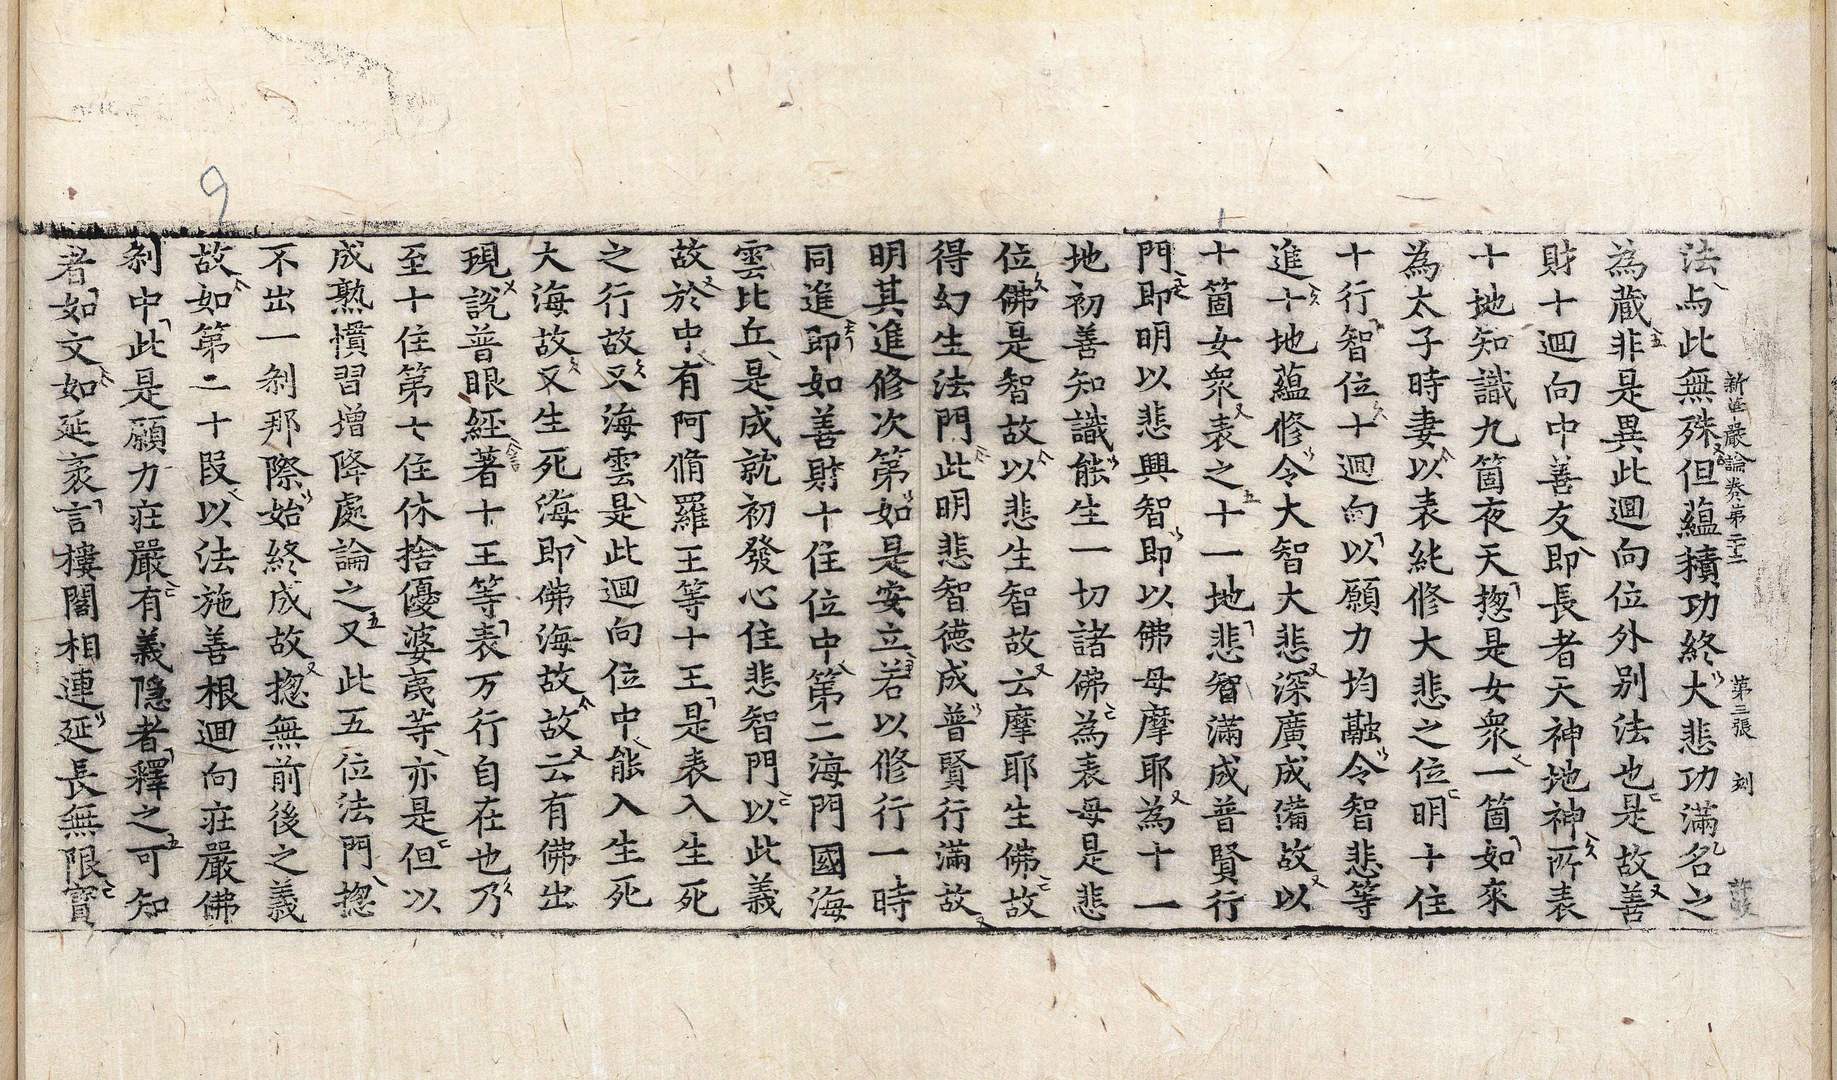 新華嚴論卷第二十二 第三張 刻
法与此無殊但蘊積功終大悲功滿名之
為蔵非是異此迴向位外別法也是故善
財十迴向中善友即長者天神地神所表
十地知識九箇夜天揔是女衆一箇如來
為太子時妻以表純修大悲之位明十住
十行智位十迴向以願力均融令智悲等
進十地蘊修令大智大悲深廣成備故以
十箇女衆表之十一地悲智滿成普賢行
門即明以悲興智即以佛母摩耶為十一
地初善知識能生一切諸佛為表母是悲
位佛是智故以悲生智故云摩耶生佛故
得幻生法門此明悲智德成普賢行滿故
明其進修次第如是安立若以修行一時
同進即如善財十住位中第二海門國海
雲比丘是成就初發心住悲智門以此義
故於中有阿脩羅王等十王是表入生死
之行故又海雲是此迴向位中能入生死
大海故又生死海即佛海故故云有佛出
現說普眼經著十王等表万行自在也乃
至十住第七住休捨優婆夷等亦是但以
成熟慣習增降處論之又此五位法門揔
不出一刹那際始終成故揔無前後之義
故如第二十段以法施善根迴向莊嚴佛
刹中此是願力莊嚴有義隱者釋之可知
者如文如延袤言樓閣相連延長無限寶